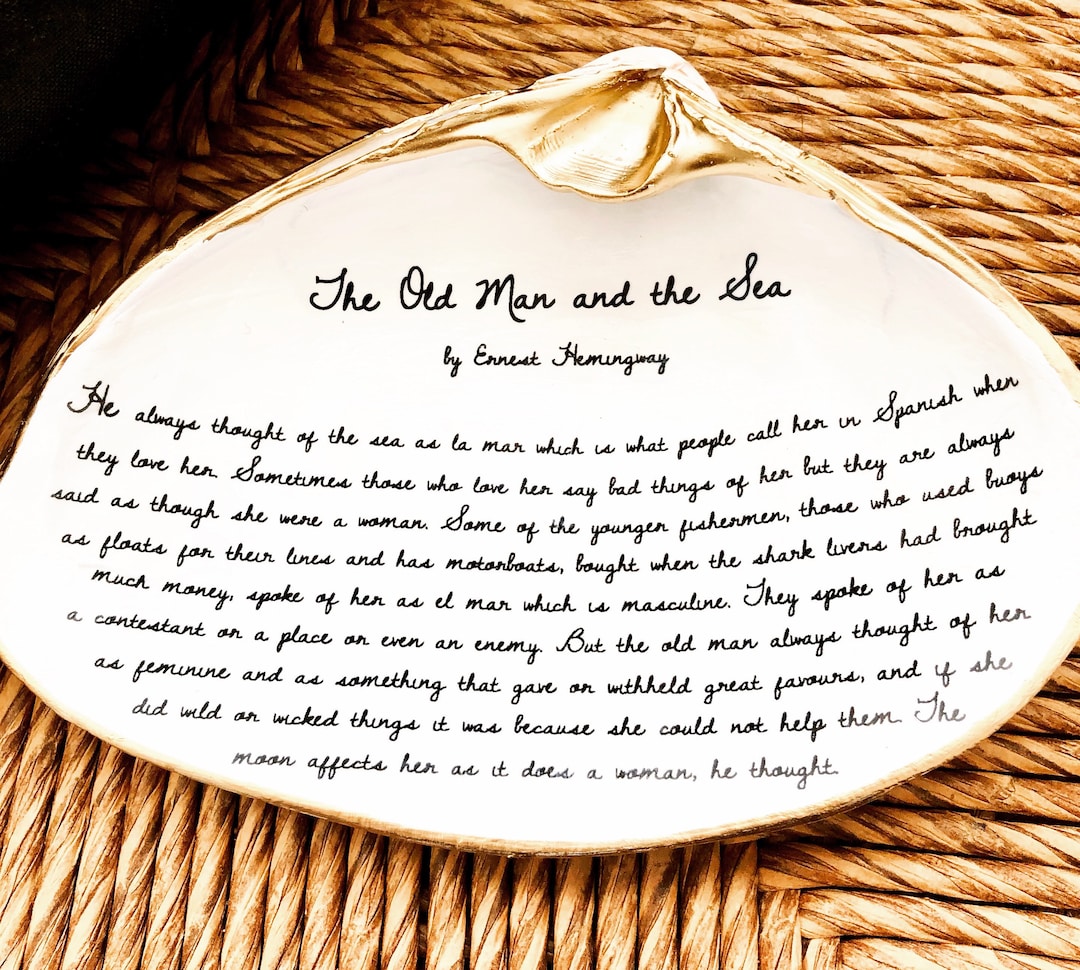 The Old Man and the Sea
by Ernest Hemingway
He always thought of the sea as la mar which is what people call her in Spanish when
they love her. Sometimes those who love her say bad things of her but they are always
said as though she were a woman. Some of the younger fishermen, those who used buoys
as floats for their lines and has motorboats, bought when the shark livers had brought
much money, spoke of her as el mar which is masculine. They spoke of her as
a contestant or a place or even an enemy. But the old man always thought of her
as feminine and as something that gave or withheld great favours, and if she
did wild or wicked things it was because she could not help them. The
moon affects her as it does a woman, he thought.